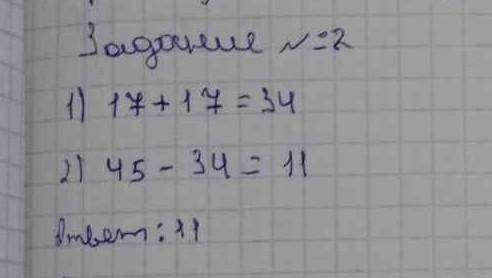 Задание №2
1) 17 + 17 = 34
2) 45 - 34 = 11
Ответ: 11